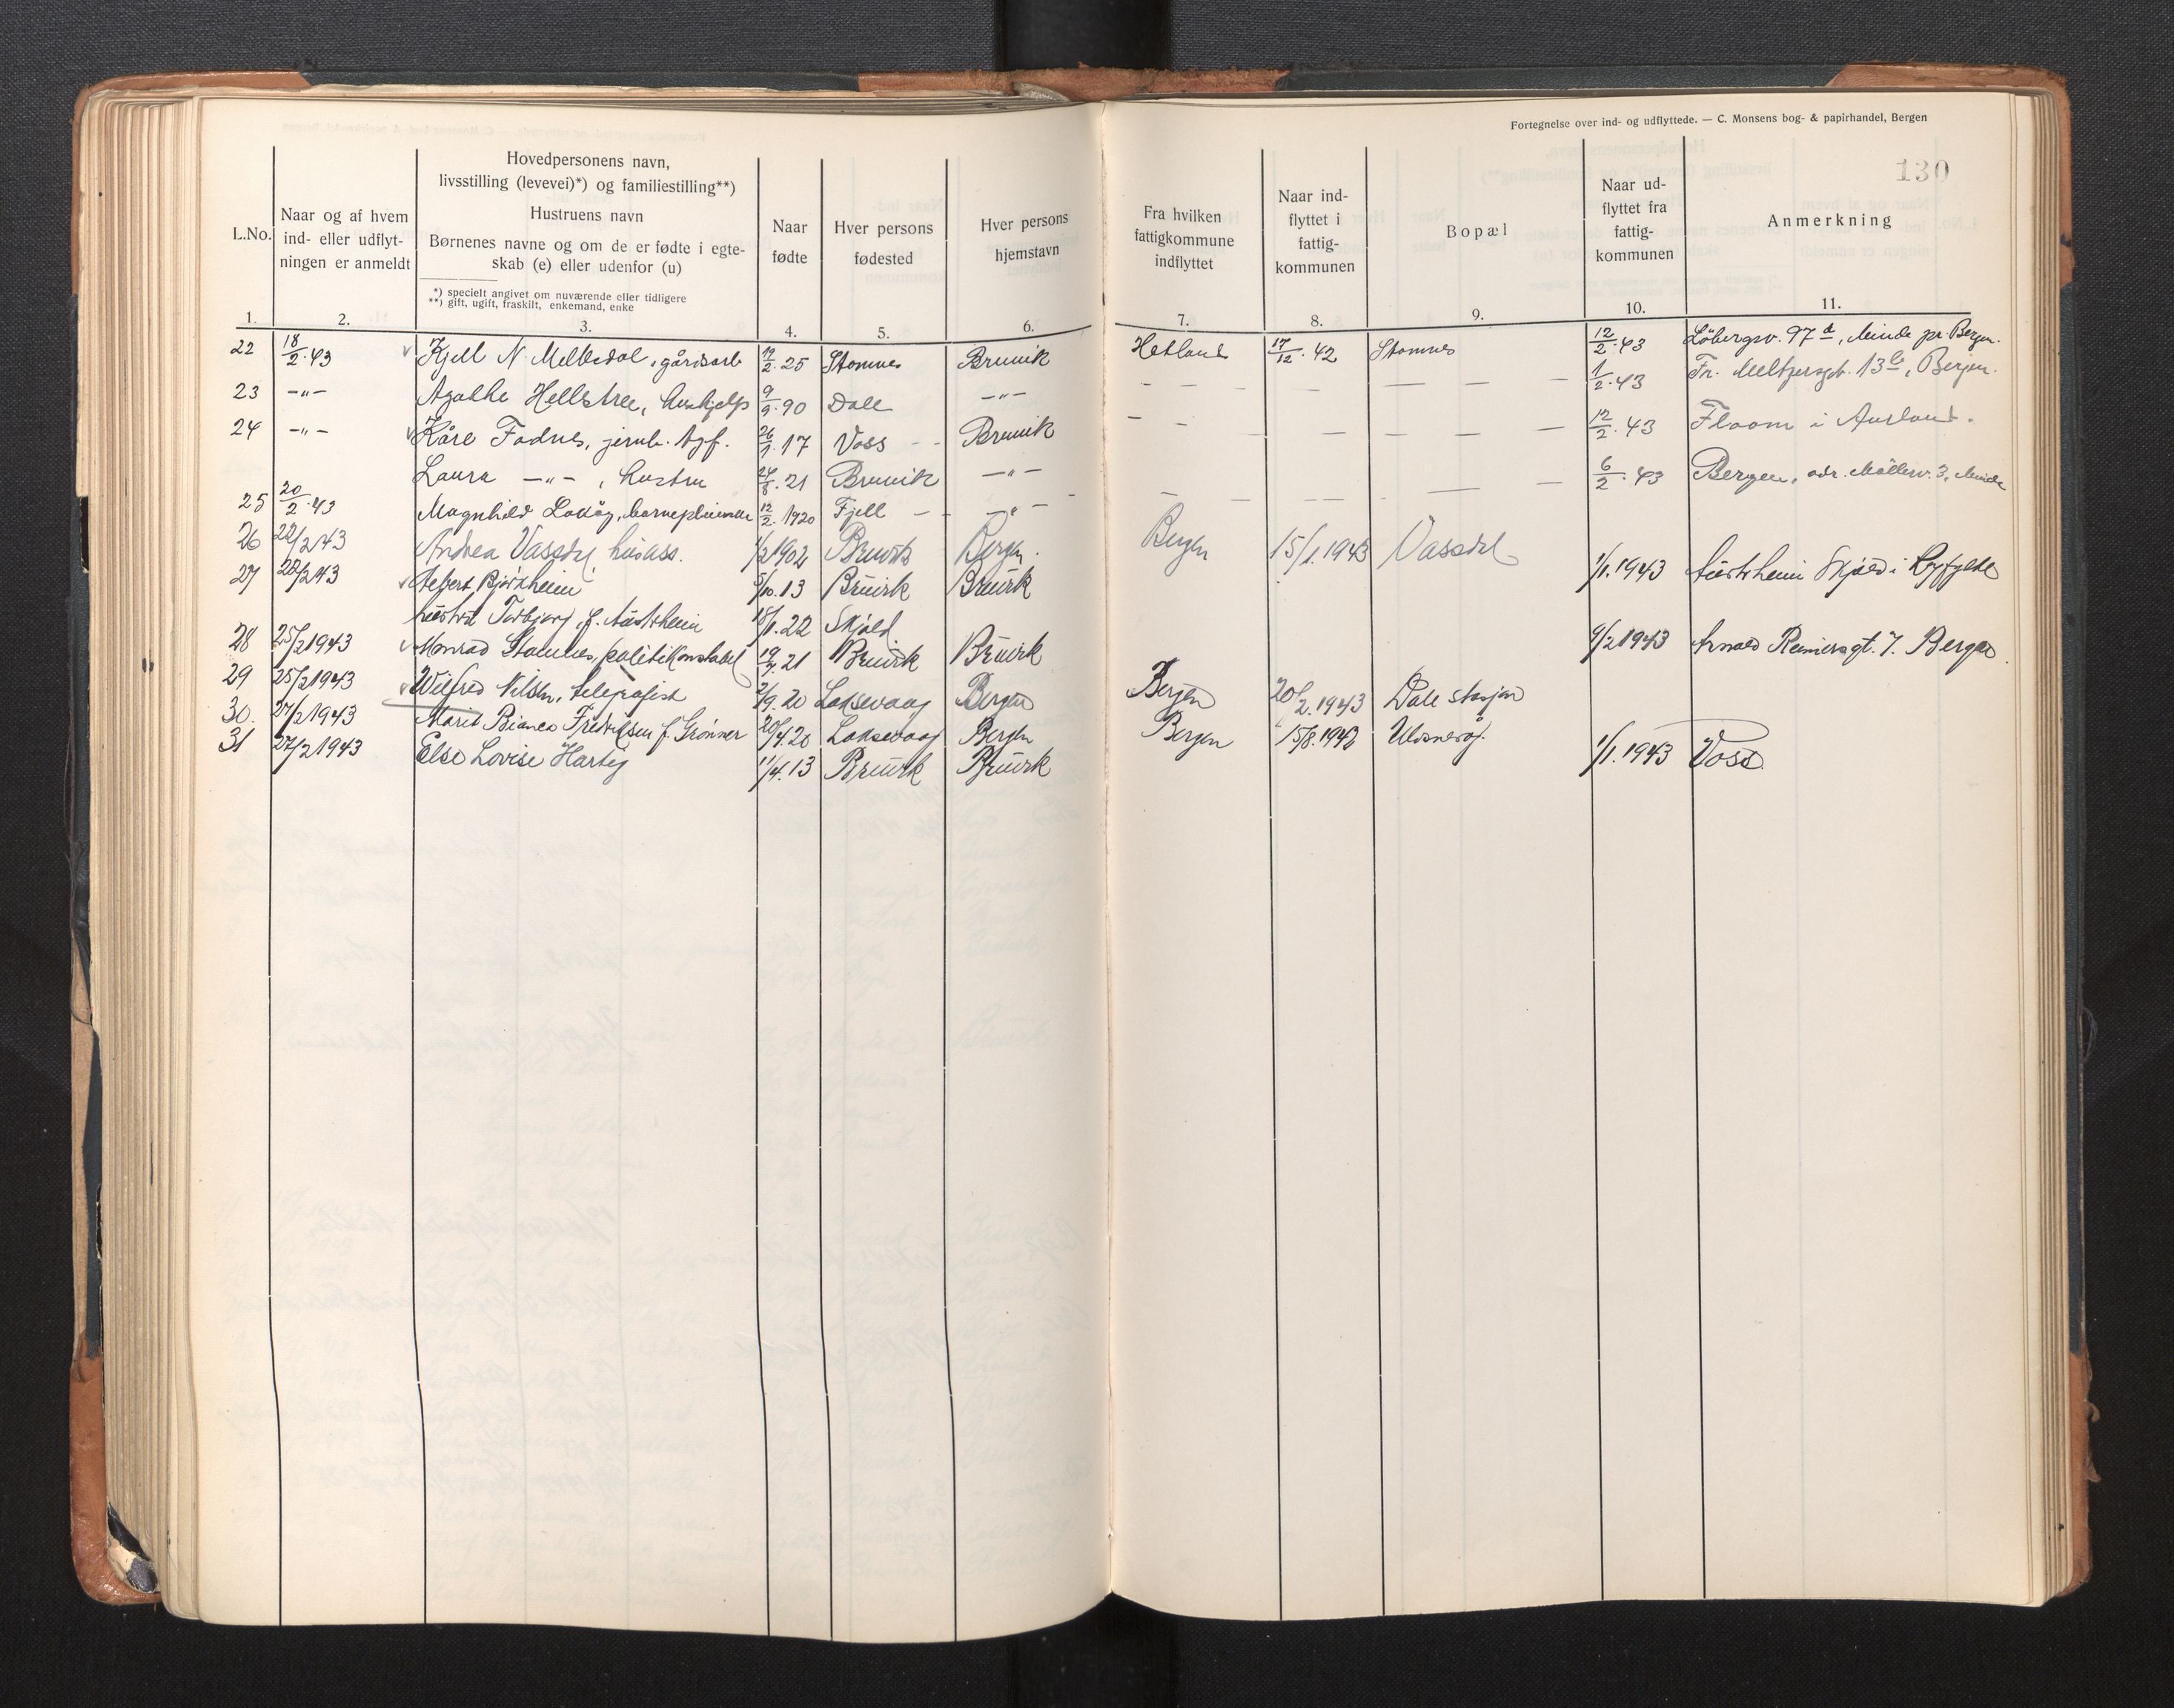 Fortegnelse over ind- og udflyttede. — C. Monsens bog- & papirhandel, Bergen
130
L.No.
Naar og af hvem ind- eller udflyt-ningen er anmeldt
Hovedpersonens navn,
livsstilling (levevei)*) og familiestilling**)
Hustruens navn
Børnenes navne og om de er fødte i egte-
skab (e) eller udenfor (u)
*) specielt angivet om nuværende eller tidligere
**) gift, ugift, fraskilt, enkemand, enke
Naar fødte
Hver persons fødested
Hver persons hjemstavn
Fra hvilken fattigkommune indflyttet
Naar ind-flyttet i fattig-kommunen
Bopæl
Naar ud-flyttet fra fattig-kommunen
Anmerkning
1. 2. 3. 4. 5. 6. 7. 8. 9. 10. 11.
22 18/2.43 Kjell N. Melbedal, gårdsarb 25 Stamnes Bruvik Hetland 17/12.42 Stamnes 12/2.43 Löbergsv. 97 d, Minde pr. Bergen.
23 -"- Agathe Hellstree, hushjelp 9/9.90 Dale -"- 1/2.43 Fr. Meltzersgt. 13 b, Bergen.
24 -"- Kåre Fadnes, jernb. 26/1.17 Voss Bruvik 12/2.43 Flaam i Aurland.
Laura -"-, hustru 24/8.21 Bruvik -"-
25 20/2.43 Magnhild barnepleierske 12/2.1920 Fjell -"- 6/2.43 Bergen, adr. Möllerv. 3, Minde
26 22/2 43 Andrea Vassdal husass. 1/2 1902 Bruvik Bergen. Bergen 15/1.1943 Vassdal
27 22/2 43 Bjørkheim 5/10.13 Bruvik Bruvik 1/1.1943 Austrheim Skjold i Ryfylke
hustru Torbjørg, f. Austrheim 18/1.22 Skjold
28 25/2 1943 Monrad Stamnes, politikonstabel 21 Bruvik Bruvik 9/2 1943 Arnold Reimersgt. 7. Bergen
29 25/2 1943 Wilfred Nilsen, telegrafist 2/9.20 Laksevaag Bergen Bergen 20/2.1943 Dale stasjon
30. 27/2 1943 Marie Bianca Fredriksen f. Grønner 20/4.20 Laksevaag Bergen Bergen 15/8.1942
31 27/2 1943 Else Lovise Hartig 11/4.13 Bruvik Bruvik 1/1.1943 Voss.